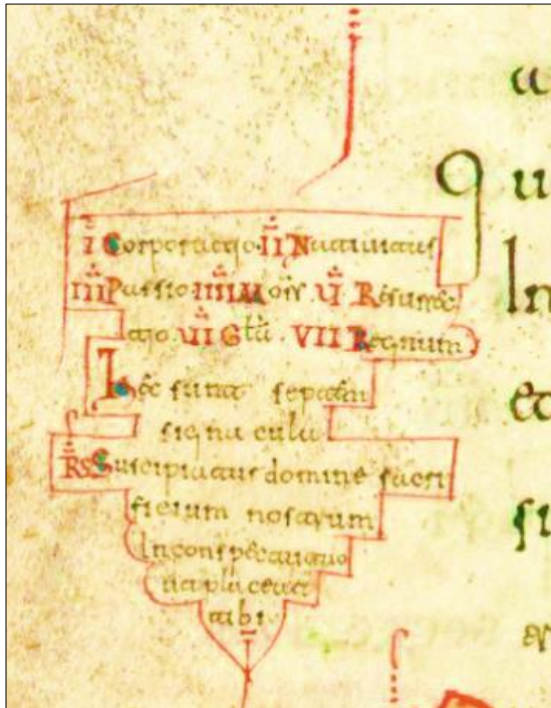 I Corporatio II Natiuitas
III Passio IIII Mors V Resurrec
tio VI Gla VII Regnum
Hec sunt septem
signacula
RS Suscipiatur domine sacri
ficium nostrum
In conspectu tuo
uti placeat
tibi
a
qu
In
et
si